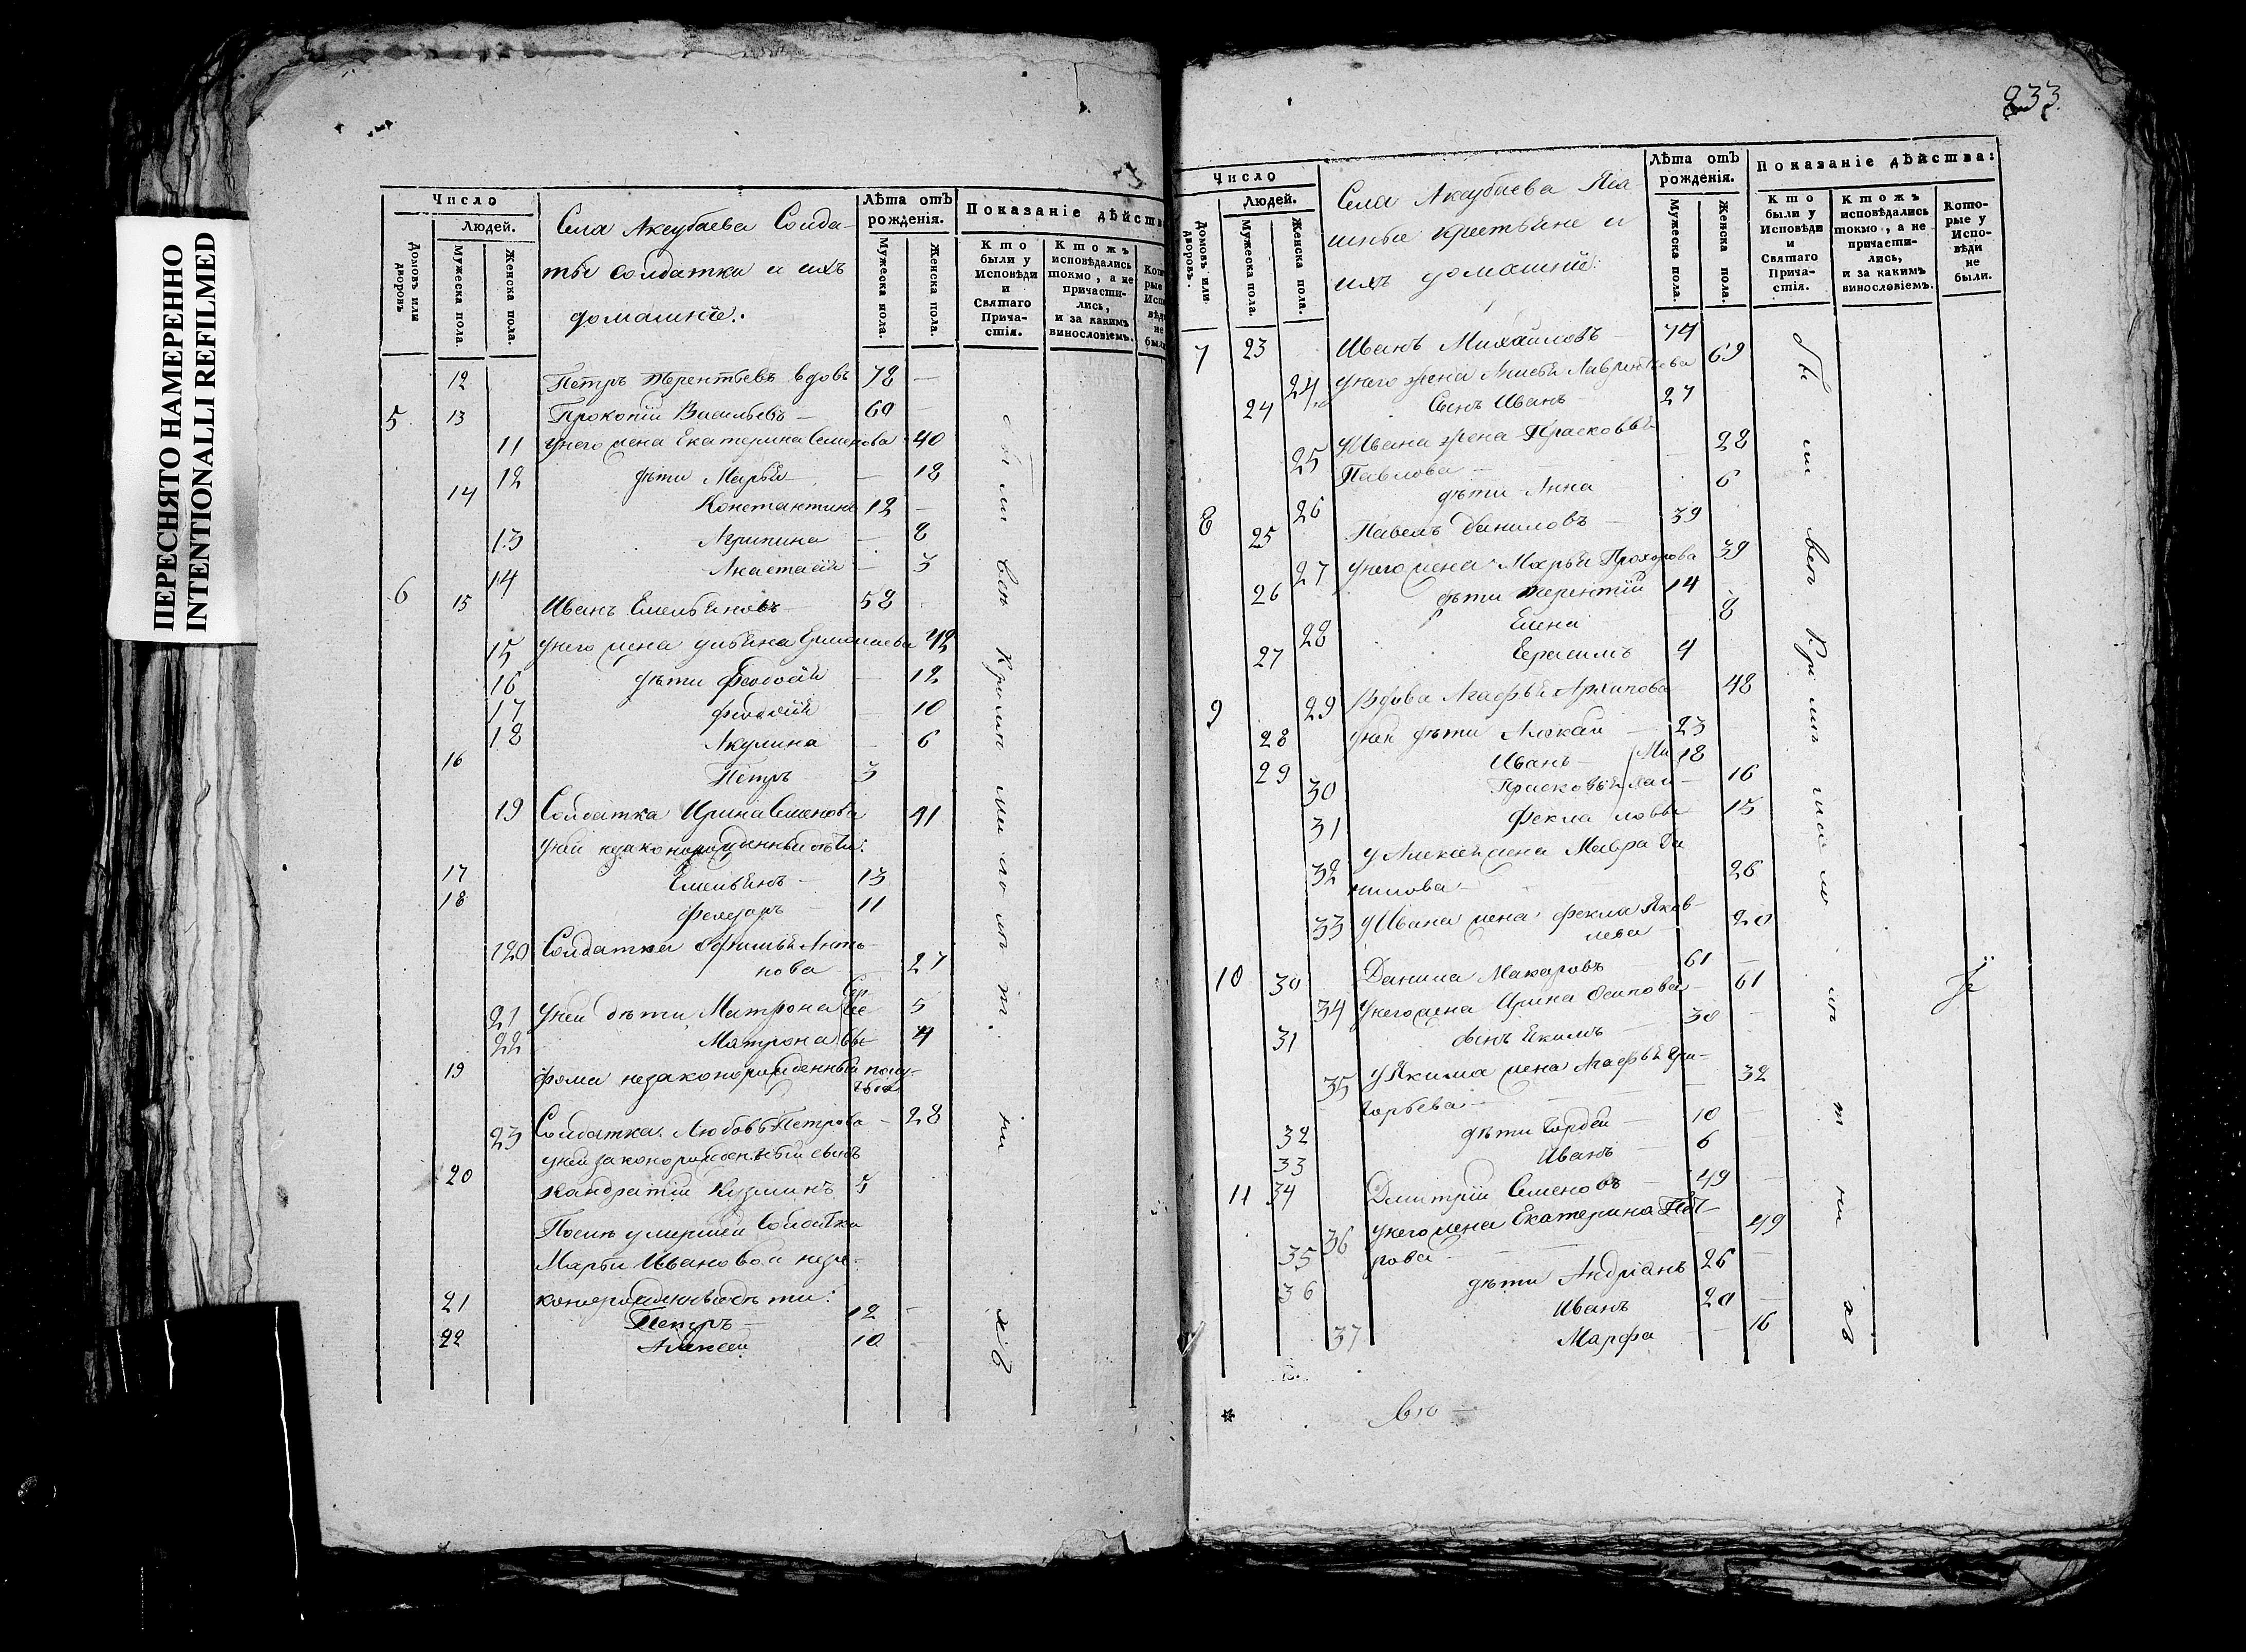 ПЕРЕСНЯТО НАМЕРЕННО
INTENTIONALLI REFILMED
Число
Людей.
Домовъ или дворовъ.
Мужеска пола.
Женска пола.
Села Аксубаева Солда-
ты солдатки и ихъ
домашніе:
Лѣта отъ
рожденія.
Мужеска пола.
Женска пола.
Показаніе дѣйств
Кто
были у
Исповѣди
и
Святаго
Прича-
стія.
Ктожъ
исповѣдались
токмо, а не
причасти-
лись,
и за какимъ
винословіемъ.
12 Петръ Терентьевъ вдовъ 72 —
5 13 Прокопій Васильевъ — 60 —
11 у него жена Екатерина Семенова 40
12 дѣти Марья — 18
14 Константинъ 12 —
13 Агрипина — 8
14 Анастасія — 3
6 15 Иванъ Емельяновъ 52
15 у него жена Ульяна Ермолаева 42
16 дѣти Феодосія — 12
17 Феодосія — 10
18 Акулина — 6
16 Петръ 3
19 Солдатка Ирина Семенова 41
у ней незаконорожденныя дѣти:
17 Емельянъ — 13
18 Феодоръ — 11
20 Солдатка Офимья Анто-
нова — 27
21 у ней дѣти Матрона Сер-
гѣе 5
22 Матрона вы 4
19 Фома незаконорожденный полу-
года
23 Солдатка Любовь Петрова — 28
у ней законорожденный сынъ
20 Кандратій Кузминъ 5
После умершей Солдатки
Марьи Ивановой неза-
конорожденны дѣти:
21 Петръ — 12 —
22 Алексей 10 —
были вси
233
Число
Людей.
Домовъ или дворовъ.
Мужеска пола.
Женска пола.
Села Аксубаева Яса
шные крестьяне и
ихъ домашніе:
Лѣта отъ
рожденія.
Мужеска пола.
Женска пола.
Показаніе дѣйства:
Кто
были у
Исповѣди
и
Святаго
Прича-
стія.
Ктожъ
исповѣдались
токмо, а не
причасти-
лись,
и за какимъ
винословіемъ.
Кото-
рые у
Испо-
вѣди
не
были.
7 23 Иванъ Михайловъ — 74
24 у него жена Анисья Лаврентьева 69
24 Сынъ Иванъ 27
25 у Ивана жена Прасковья
Павлова — 22
26 дѣти Анна 6
8 25 Павелъ Даниловъ — 39
27 у него жена Марья Прохорова 39
26 дѣти Терентій 14
28 Елена — 8
27 Герасимъ 4
9 29 Вдова Агафья Архипова 48
28 у ней дѣти Алексей — 23
29 Иванъ — Ми 18
30 Прасковья хай — 16
31 Фекла ловы 13
32 у Алексея жена Мавра Да
нилова — 26
33 у Ивана жена Фекла Яков-
лева 20
10 30 Данила Макаровъ 61 —
34 у него жена Ирина Осипова 61
31 сынъ Екимъ 30 —
35 у Якима жена Агафья Гри-
горьева — 32
32 дѣти Гордей — 10 —
33 Иванъ — 6 —
11 34 Дмитрій Семеновъ — 49 —
36 у него жена Екатерина Пет-
рова 49
35 дѣти Андріанъ 26 —
36 Иванъ 20 —
37 Марфа — 16
были вси